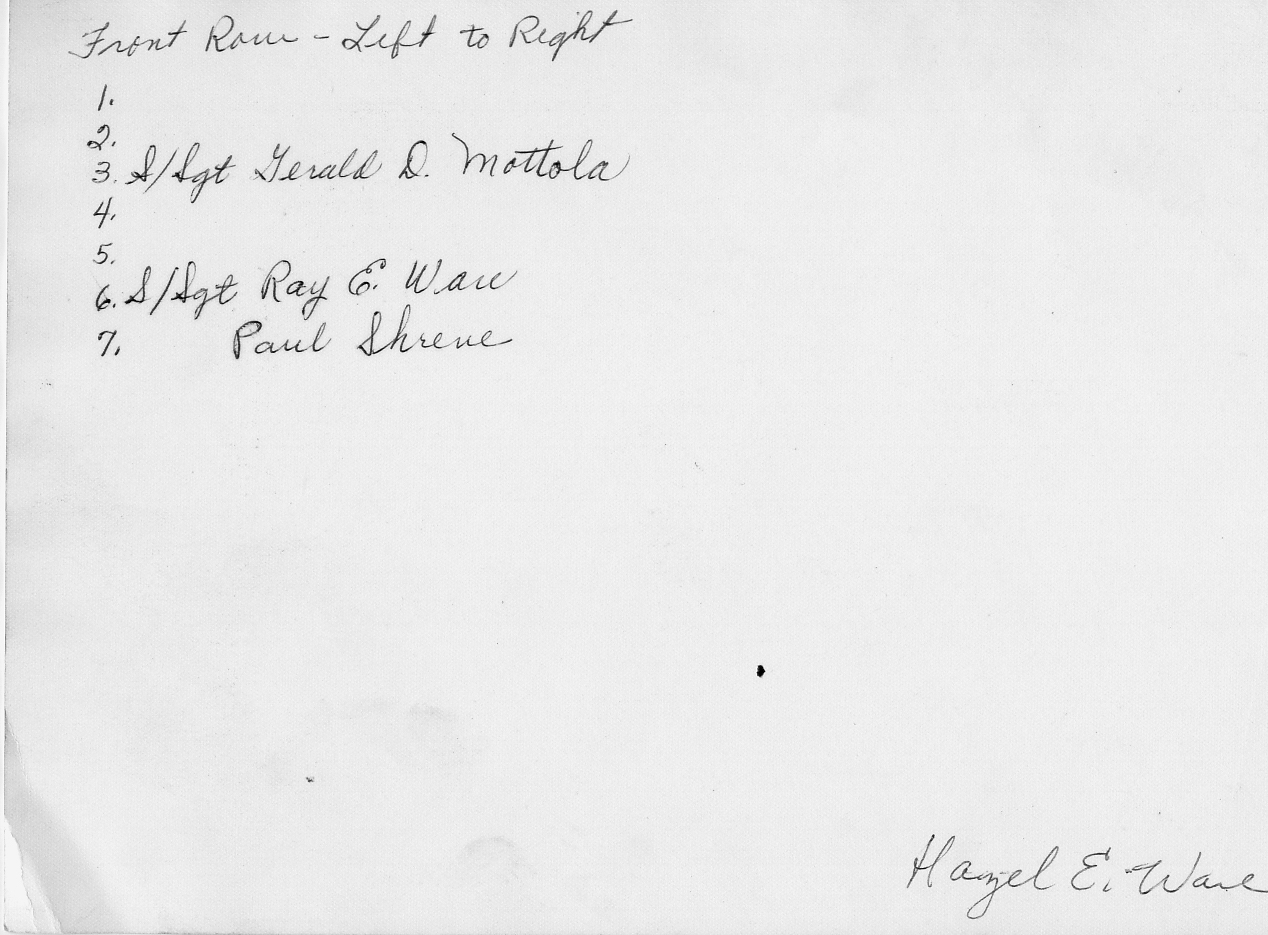 Front Row - Left to Right
1.
2.
3. S/Sgt Gerald D. Mottola
4.
5.
6. S/Sgt Ray E. Ware
7. Paul Shreve
Hazel E. Ware